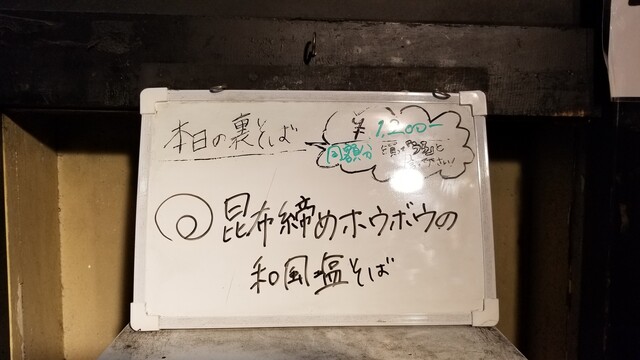 本日の裏そば
¥1,200-
同額分
昆布締めホウボウの
和風塩そば